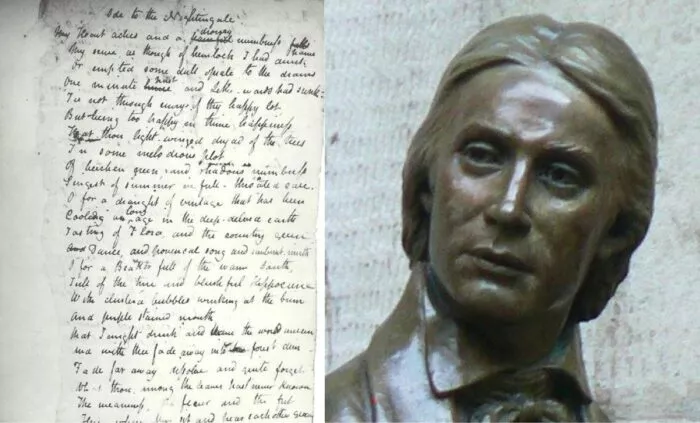 Ode to the Nightingale.
My Heart aches and a drowsy painful numbness falls
My sense as though of hemlock I had drunk
Or emptied some dull opiate to the drains
One minute past and Lethe-wards had sunk.
Tis not through envy of thy happy lot
But being too happy in thine happiness
That thou light winged dryad of the trees
In some melodious plot
Of beechen green and shadows numberless
Singest of summer in full-throated ease.
O for a draught of vintage that has been
Cooling an long age in the deep-delved earth
Tasting of Flora, and the country green
And Dance, and provencal song and sunburnt mirth
O for a Beaker full of the warm South,
Full of the true and blushful Hippocrene
With cluster'd bubbles winking at the brim
And purple stained mouth
That I might drink and leave the world unseen
And with thee fade away into forest dim
Fade far away dissolve and quite forget
What thou among the leaves hast never known
The weariness, the fever and the fret
Here where men sit and hear each other groan